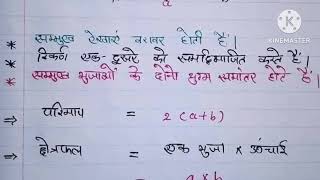 a
* सम्मुख रेखाएं बराबर होती हैं।
* विकर्ण एक-दूसरे को समद्विभाजित करते हैं।
* सम्मुख भुजाओं के दोनों युग्म समांतर होते हैं।
⇒ परिमाप = 2(a+b)
⇒ क्षेत्रफल = एक भुजा × ऊंचाई
= a × h
K
Made with
KINEMASTER